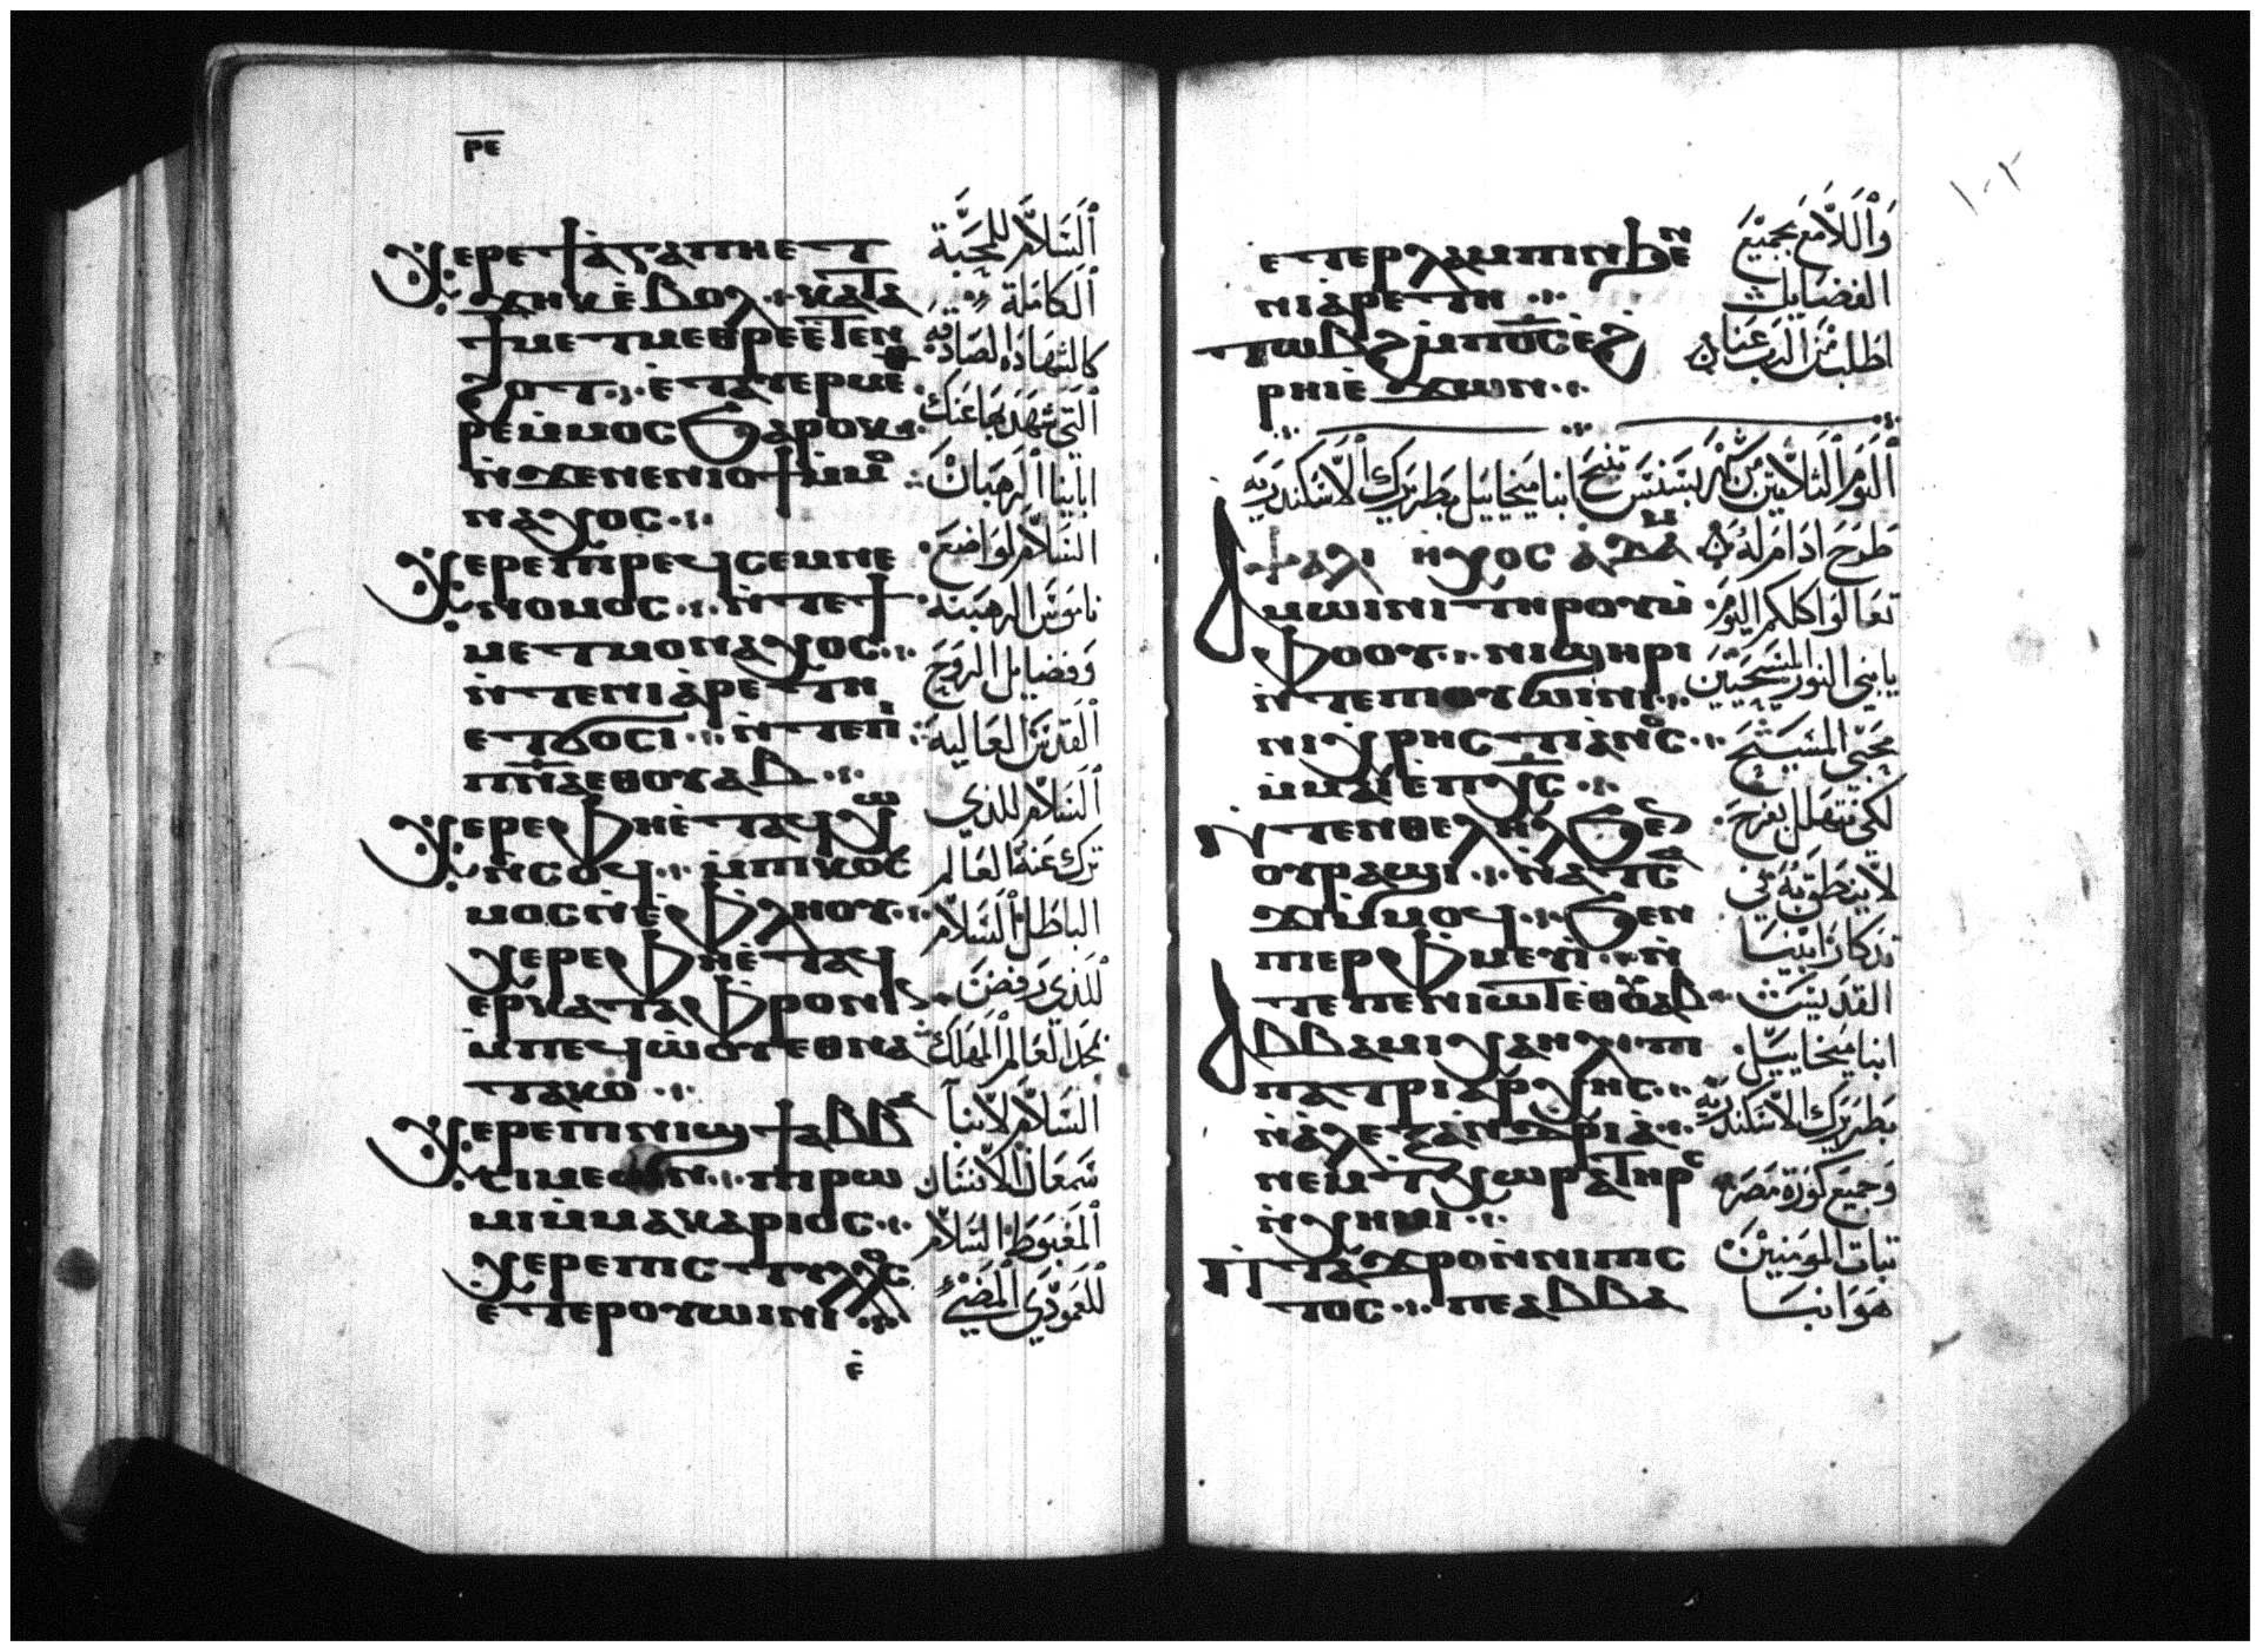 ⲣⲉ
ⲭⲉⲣⲉ ϯⲁ̀ⲅⲁⲡⲏ ⲉⲧ
ϫⲏⲕ ⲉ̀ⲃⲟⲗ ⲕⲁⲧⲁ
ϯⲙⲉⲧⲙⲉⲑⲣⲉ ⲉ̀ⲧⲉⲛ
ϩⲟⲧ ⲉ̀ⲧⲁⲩⲉⲣⲙⲉ
ⲣⲉ ⲙ̀ⲙⲟⲥ ϧⲁⲣⲟⲕ
ⲛ̀ϫⲉ ⲛⲉⲛⲓⲟϯ ⲙ̀ⲙⲟ
ⲛⲁⲭⲟⲥ
ⲭⲉⲣⲉ ⲡⲓⲣⲉϥⲥⲉⲙⲛⲉ
ⲛⲟⲙⲟⲥ ⲛ̀ⲧⲉ ϯ
ⲙⲉⲧⲙⲟⲛⲁⲭⲟⲥ
ⲛ̀ⲧⲉ ⲛⲓⲁ̀ⲣⲉⲧⲏ
ⲉⲧϭⲟⲥⲓ ⲛ̀ⲧⲉ ⲡⲓ
ⲡ̅ⲛ̅ⲁ̅ ⲉⲑⲟⲩⲁⲃ
ⲭⲉⲣⲉ ⲫⲏ ⲉ̀ⲧⲁϥⲭⲱ
ⲛ̀ⲥⲱϥ ⲙ̀ⲡⲓⲕⲟⲥ
ⲙⲟⲥ ⲛ̀ⲉ̀ⲫⲗⲏⲟⲩ
ⲭⲉⲣⲉ ⲫⲏ ⲉ̀ⲧⲁϥ
ⲉⲣⲕⲁⲧⲁⲫⲣⲟⲛⲓⲛ
ⲙ̀ⲡⲉϥⲱ̀ⲟⲩ ⲉⲑⲛⲁ
ⲧⲁⲕⲟ
ⲭⲉⲣⲉ ⲡⲓⲛⲓϣϯ ⲁⲃⲃⲁ
ⲥⲓⲙⲉⲱⲛ ⲡⲓⲣⲱ
ⲙⲓ ⲙ̀ⲙⲁⲕⲁⲣⲓⲟⲥ
ⲭⲉⲣⲉ ⲡⲓⲥⲧⲩⲗⲟⲥ
ⲉⲧⲉⲣⲟⲩⲱⲓⲛⲓ
ⲉ̀
اَلسَلاَّم للمَحَبَّة
اَلكامَلة
كالشهَادَه الصَادقه
اَلتي شهَدَ بهَا عَنك
ابَاينا اَلرَهبَان
السَلاَّم لوَاضَع
نامَوسَ الرهبَنه
وَفضايل الرَوحَ
اَلقدسَ العَاليه
اَلسَلاَّم للذي
ترك عَنهُ العَالم
الباطل اَلسَلاَّم
للذي رَفض
مجَد العَالم المهَلك
السَلاَّم لاَنبا
سَمعَان الاَنسَان
اَلمغبَوط السَلاَّم
للعَمَودَي اَلمَضيَء
١٠٢
ⲉⲧⲉⲣⲗⲁⲙⲡⲓⲛ ϧⲉⲛ
ⲛⲓⲁ̀ⲣⲉⲧⲏ
ⲧⲱⲃϩ ⲙ̀ⲡ̅ⲟ̅ⲥ̅ ⲉ̀ϩ
ⲣⲏⲓ ⲉ̀ϫⲱⲛ
وَاَللاَّمَع بجَميَع
الفضايل
اطلب مَن الرَب عَنا
اَليَوم اَلثلاَّثين مَن شَهر بَشنسَ تنيح انبا ميخاييل بَطريَرك اَلاَّسكندَريه
ⲯⲁⲗⲓ ⲏⲭⲟⲥ ⲁ̀ⲇⲁⲙ
ⲁⲙⲱⲓⲛⲓ ⲧⲏⲣⲟⲩ ⲙ̀
ⲫⲟⲟⲩ ⲛⲓϣⲏⲣⲓ
ⲛ̀ⲧⲉ ⲡⲓⲟⲩⲱⲓⲛⲓ
ⲛⲓⲭⲣⲏⲥⲧⲓⲁⲛⲟⲥ
ⲙ̀ⲙⲁⲓⲡ̅ⲭ̅ⲥ̅
ⲛ̀ⲧⲉⲛⲑⲉⲗⲏⲗ ϧⲉⲛ
ⲟⲩⲣⲁϣⲓ ⲛ̀ⲁⲧⲥⲁ
ϫⲓ ⲙ̀ⲙⲟϥ ϧⲉⲛ
ⲡⲉⲣⲫⲙⲉⲩⲓ̀ ⲛ̀
ⲧⲉ ⲡⲉⲛⲓⲱⲧ ⲉⲑⲟⲩⲁⲃ
ⲁⲃⲃⲁ ⲙⲓⲭⲁⲏⲗ ⲡⲓ
ⲡⲁⲧⲣⲓⲁⲣⲭⲏⲥ
ⲛ̀ⲁ̀ⲗⲉⲝⲁⲛⲇⲣⲓⲁ̀
ⲛⲉⲙ ⲧⲭⲱⲣⲁ ⲧⲏⲣⲥ
ⲛ̀ⲭⲏⲙⲓ
ⲡⲓⲧⲁϫⲣⲟ ⲛ̀ⲛⲓⲡⲓⲥ
ⲧⲟⲥ ⲡⲉ ⲁⲃⲃⲁ
طرَحَ ادَامَ لهُ
تعَالوَا كلكم اليَوَم
يابني النور المَسَيحَيين
محَبي المسَيَحَ
لكي نتهلل بفرَحَ
لاَ ينطق بَهُ في
تذكار اَبينا
القدَيسَ
انبا ميخاييل
بَطريَرك الاَسكندَريه
وَجميع كوَرَة مصَر
ثبات المومَنين
هَوَ انبَا